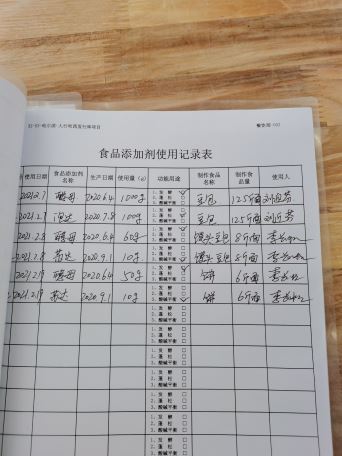 食品添加剂使用记录表
使用日期 食品添加剂名称 生产日期 使用量(g) 功能用途 制作食品名称 制作食品量 使用人
2021.2.7 酵母 2020.6.4 100g 1、发 酵 2、蓬 松 3、酸碱平衡 豆包 12.5斤面
2021.2.7 2020.7.8 100g 1、发 酵 2、蓬 松 3、酸碱平衡 豆包 12.5斤面
2021.2.8 酵母 2020.6.4 60g 1、发 酵 2、蓬 松 3、酸碱平衡 馒头豆包 8斤面
2021.2.8 2020.9.1 10g 1、发 酵 2、蓬 松 3、酸碱平衡 馒头豆包 8斤面
2021.2.9 酵母 2020.6.4 50g 1、发 酵 2、蓬 松 3、酸碱平衡 饼 6斤面
2021.2.9 2020.9.1 10g 1、发 酵 2、蓬 松 3、酸碱平衡 饼 6斤面
1、发 酵 2、蓬 松 3、酸碱平衡
1、发 酵 2、蓬 松 3、酸碱平衡
1、发 酵 2、蓬 松 3、酸碱平衡
1、发 酵 2、蓬 松 3、酸碱平衡
1、发 酵 2、蓬 松 3、酸碱平衡
1、发 酵 2、蓬 松